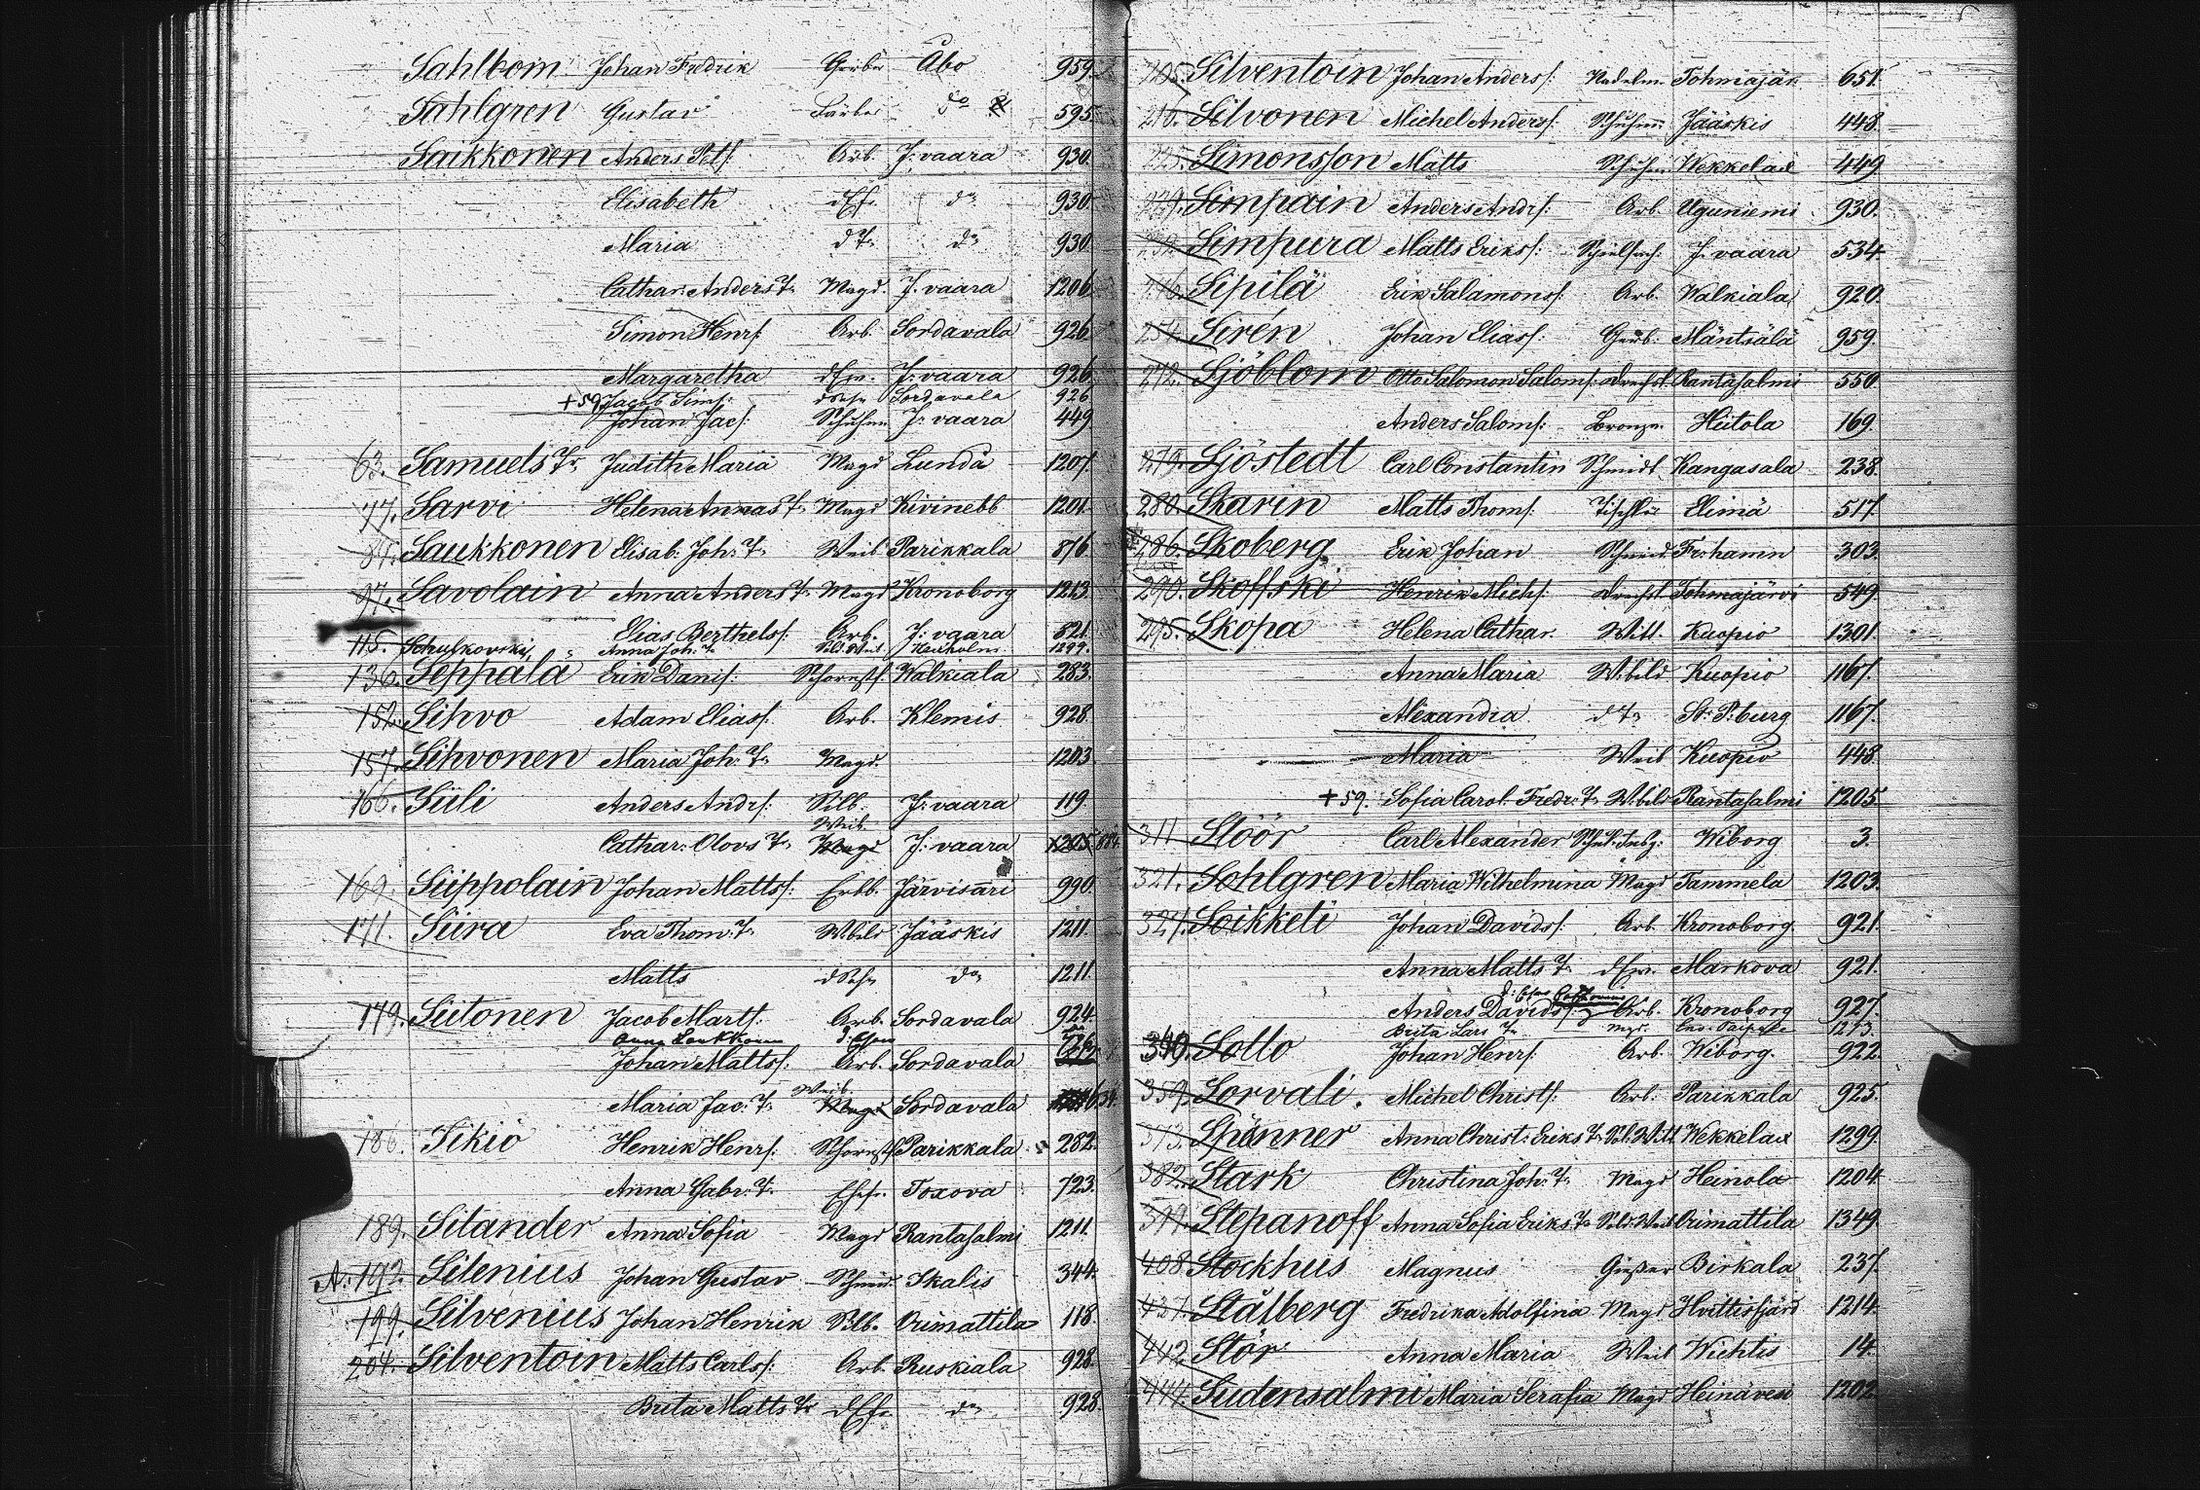 Sahlbom Johan Fredrik Gerber Åbo 959
Sahlgren Gustav Färber do 595
Saikkonen Anders Pets: Arb. J:vaara 930
Elisabeth dEfr do 930
Maria dTr do 930
Cathar: AndersTr Magd J:vaara 1206
Simon Henrs: Arb. Sordavala 926
Margaretha J:vaara 926
+59 Jacob Sims: Sordavala 926
Johan Jacs: Schuhm J:vaara 449
63. SamuelsTr Judith Maria Magd Lundå 1207
77. Sarvi Helena Annas Tr Magd Kivinebb 1201
Saukkonen Elisab: Joh: Tr Weib Parikkala 876
97. Savolain Anna Anders Tr Magd Kronoborg 1213
Elias Berthels: Arb. J:vaara 821
115. Schulkovski Anna Joh: Tr 1299
136. Seppälä Erik Danis: Schornstf Walkiala 283
152. Sihvo Adam Elias: Arb. Klemis 928
157. Sihvonen Maria Joh: Tr Magd 1203
166. Siili Anders Ands: Silb. J:vaara 119
Weib
Cathar: Olovs Tr Magd J:vaara 1205
169. Siippolain Johan Matts: Järvisari 990
171. Siira Eva Thom: Tr Wbild Jääskis 1211
Matts dSohn do 1211
179. Siitonen Jacob Marts: Arb. Sordavala 924
Johan Matts: Arb. Sordavala
Weib
Maria Jac: Tr Magd Sordavala
186. Sikiö Henrik Henrs: Schornstf Parikkala 282
Anna Gabr: Tr Ehefr Toxova 723
189. Silander Anna Sofia Magd Rantasalmi 1211
A: 192 Silenius Johan Gustav Schmid Ikalis 344
199. Silvenius Johan Henrik Silb. Orimattila 118
204. Silventoin Matts Carls: Arb. Ruskiala 928
Brita Matts Tr dEfr do 928
205. Silventoin Johan Anders: Nadelm Tohmajär 651
210. Silvonen Michel Anders: Schuhm Jääskis 448
225. Simonsson Matts Schuhm Wekkelax 449
Simpain Anders Ands: Arb Uguniemi 930
Simpura Matts Eriks: J:vaara 534
Sipilä Erik Salamons: Arb. Walkiala 920
254. Sirén Johan Elias: Gerb: Mäntsälä 959
272. Sjöblom Otto Salomon Saloms: Drechsl. Rantasalmi 550
Anders Saloms: Bronzr Hiitola 169
279. Sjöstedt Carl Constantin Schmidt Kangasala 238
280. Skarin Matts Thoms: Tischler Elimä 517
286. Skoberg Erik Johan Schmid Fr:hamn 303
290. Skoffski Henrik Michs: Drechsl Tohmajärvi 549
295. Skopa Helena Cathar. Witt. Kuopio 1301
Anna Maria Wbild Kuopio 1167
Alexandra dTr St: P:burg 1167
Maria Weib Kuopio 448
+59. Sofia Carol: Fredr: Tr Wbild Rantasalmi 1205
311 Slöör Carl Alexander Wiborg 3.
321. Sohlgren Maria Wilhelmina Magd Tammela 1203
327. Soikkeli Johan Davids: Arb. Kronoborg 921
Anna Matts Tr Markova 921
Anders Davids: Arb. Kronoborg 927
Brita Lars Tr Magd. 1213
340. Sollo Johan Henrs: Arb. Wiborg. 922
359. Sorvali. Michel Christs: Arb: Parikkala 925
373. Spånner Anna Christ: Eriks Tr Sol. Witt Wekkelax 1299
382. Stark Christina Joh: Tr Magd Heinola 1204
399. Stepanoff Anna Sofia Eriks Tr Sold: Weib Orimattila 1349
408 Stockhus Magnus Gießer Birkala 237
437. Stålberg Fredrika Adolfina Magd Hvittisfjärd 1214
442. Stör Anna Maria Weib Wichtis 14
444. Sudensalmi Maria Serafia Magd Heinävesi 1202